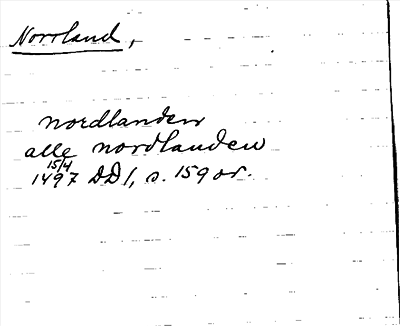 Norrland,
nordlanden
alle nordlanden
15/4
1497 DD 1, s. 159 or.